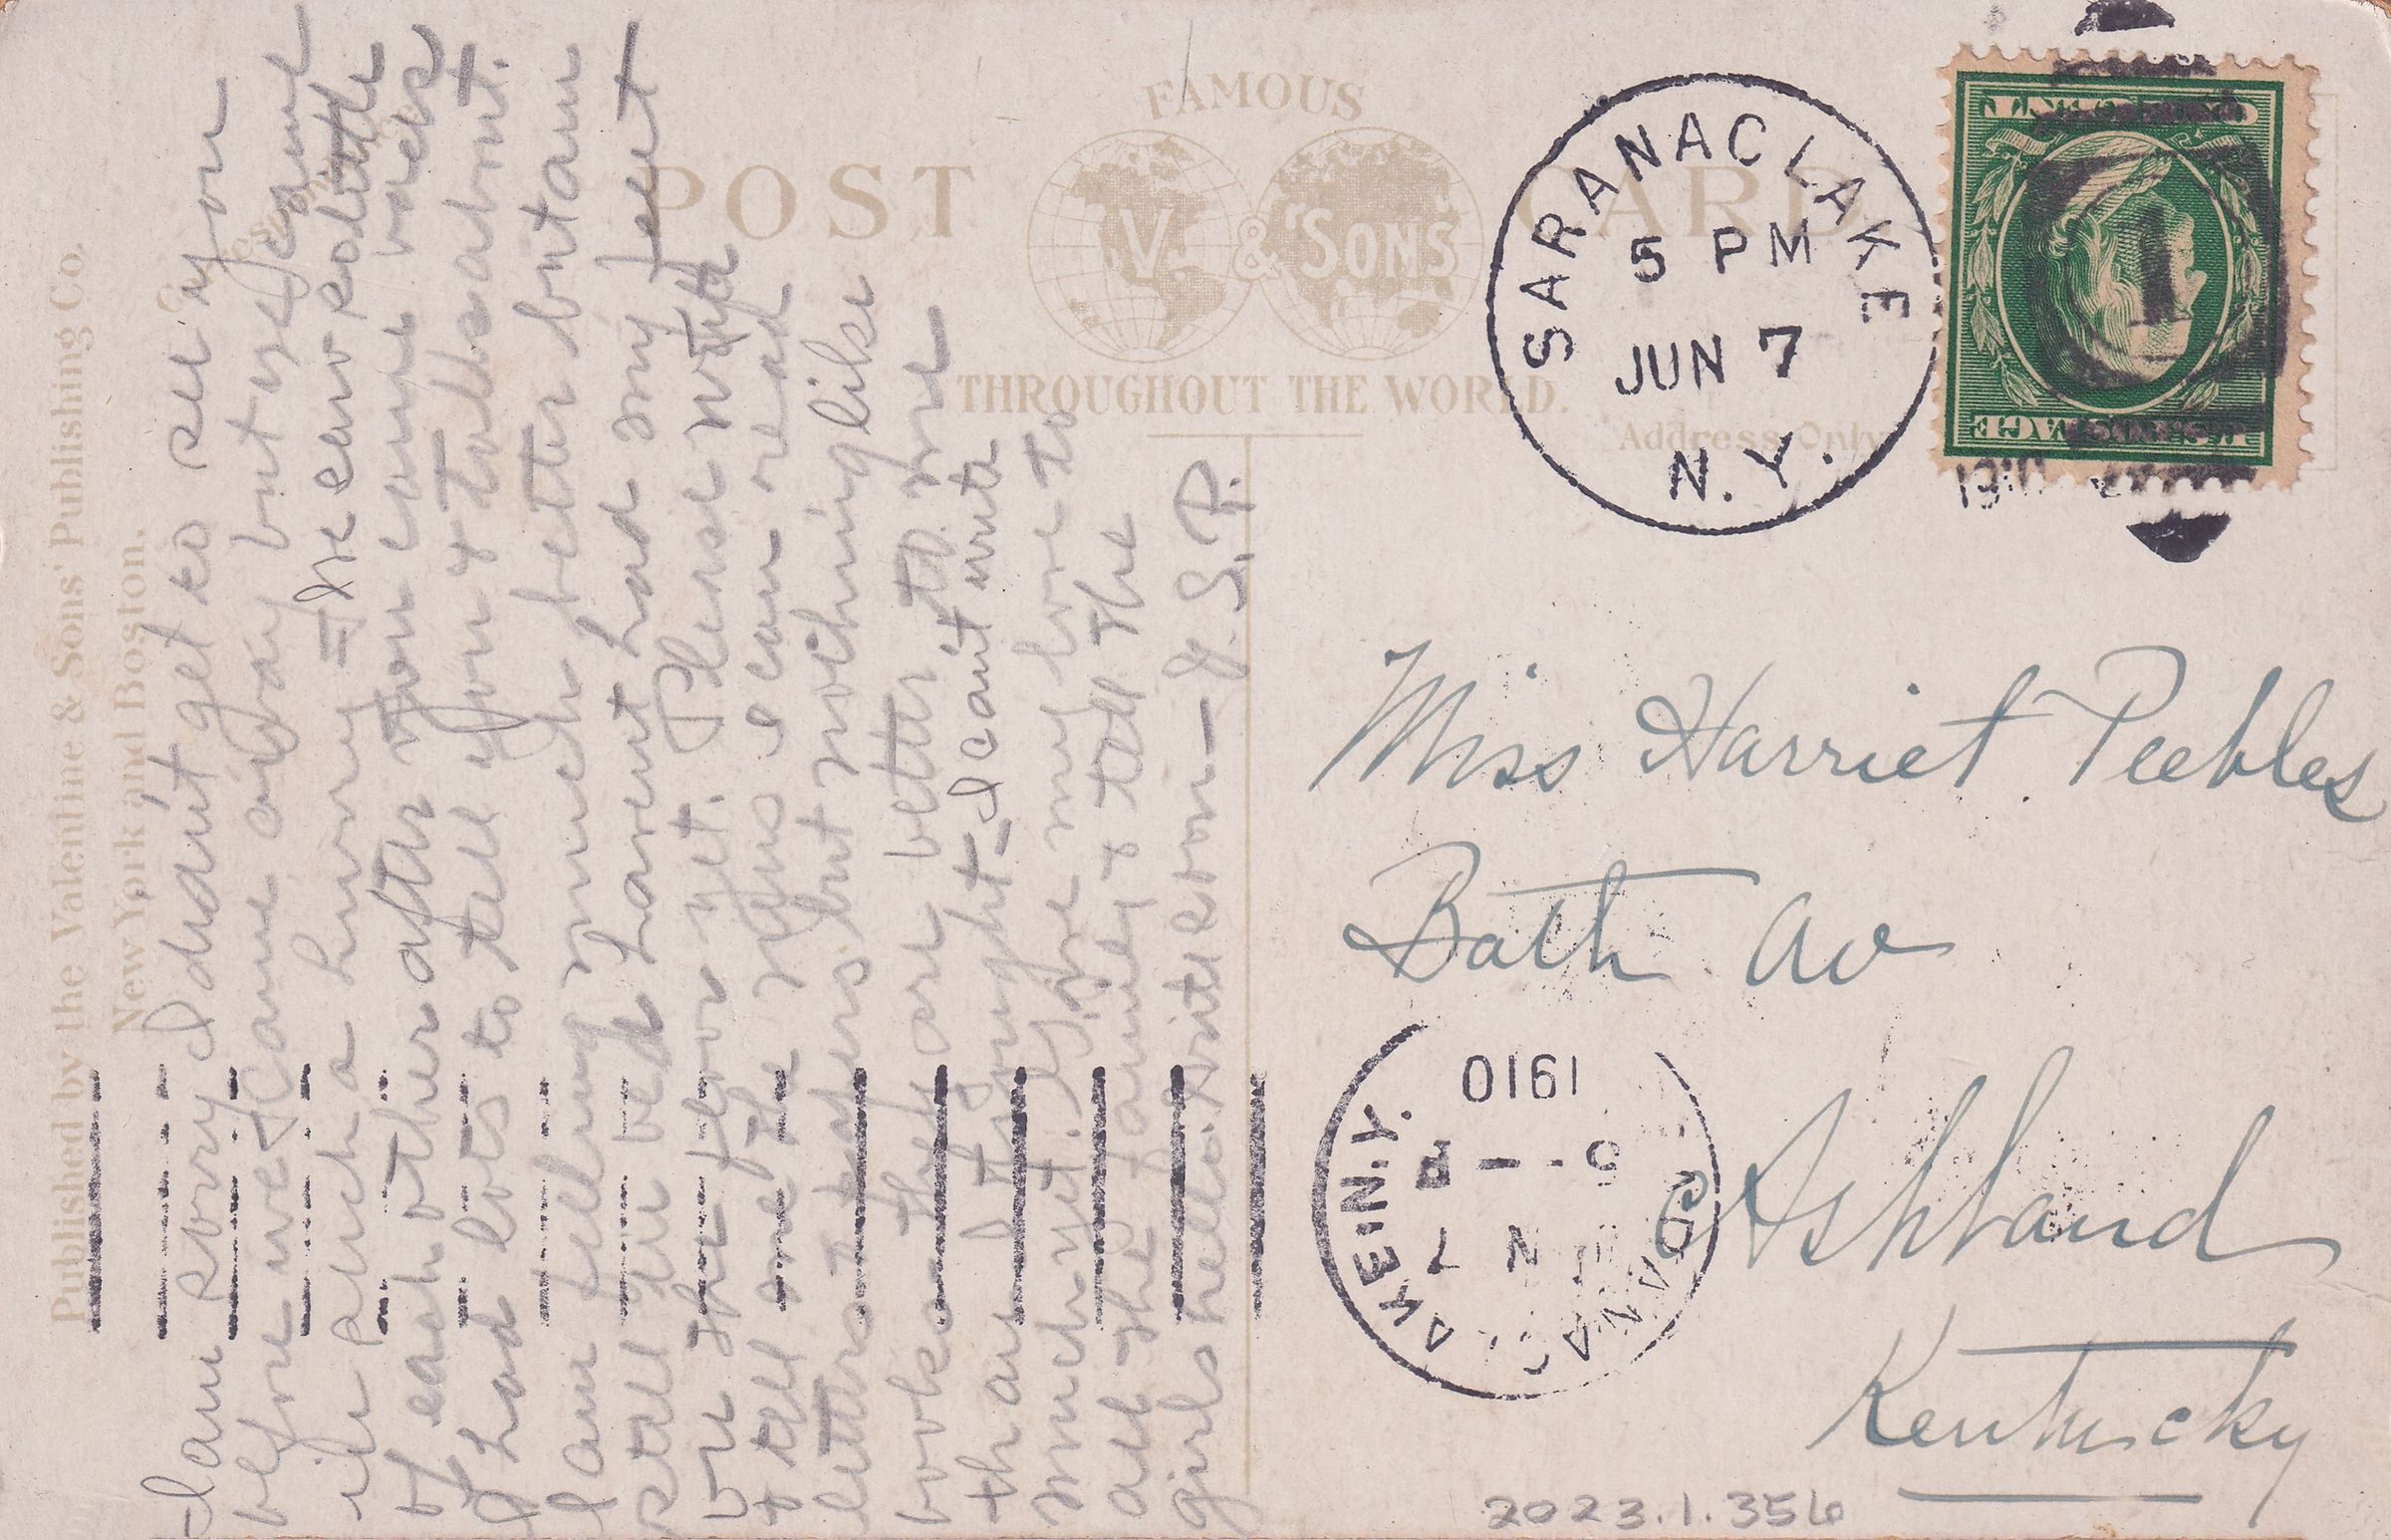 Published by the Valentine & Sons' Publishing Co.
New York and Boston.
FAMOUS
POST CARD
V. & SONS
THROUGHOUT THE WORLD.
Address Only
SARANAC LAKE
5 PM
JUN 7
N.Y.
1
1910
I am sorry I didnt get to see you
before we came away but we came
in such a hurry = We can see
of each other after you come back
I had lots to tell you & talk about.
I am feeling much better but am
still in bed havent had my feet
on the floor yet. Please write
& tell me the news I can read
letters & papers but nothing like
books they are better to me
than I thought - I cant write
much yet. Give my love to
all the family & tell the
girls hello. Write soon - J. S. P.
Miss Harriet Peebles
Bath Av
Ashland
Kentucky
1910
2023.1.356